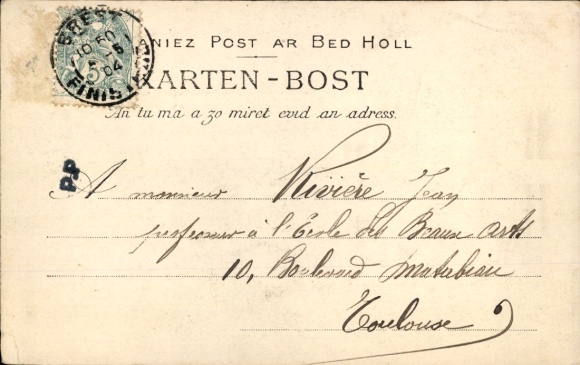 BREST
10 50
5
04
FINIS
NIEZ POST AR BED HOLL
KARTEN-BOST
An tu ma a zo miret evid an adress.
PP
A monsieur Rivière Jean
professeur à l'École des Beaux arts
10, Boulevard Matabiau
Toulouse